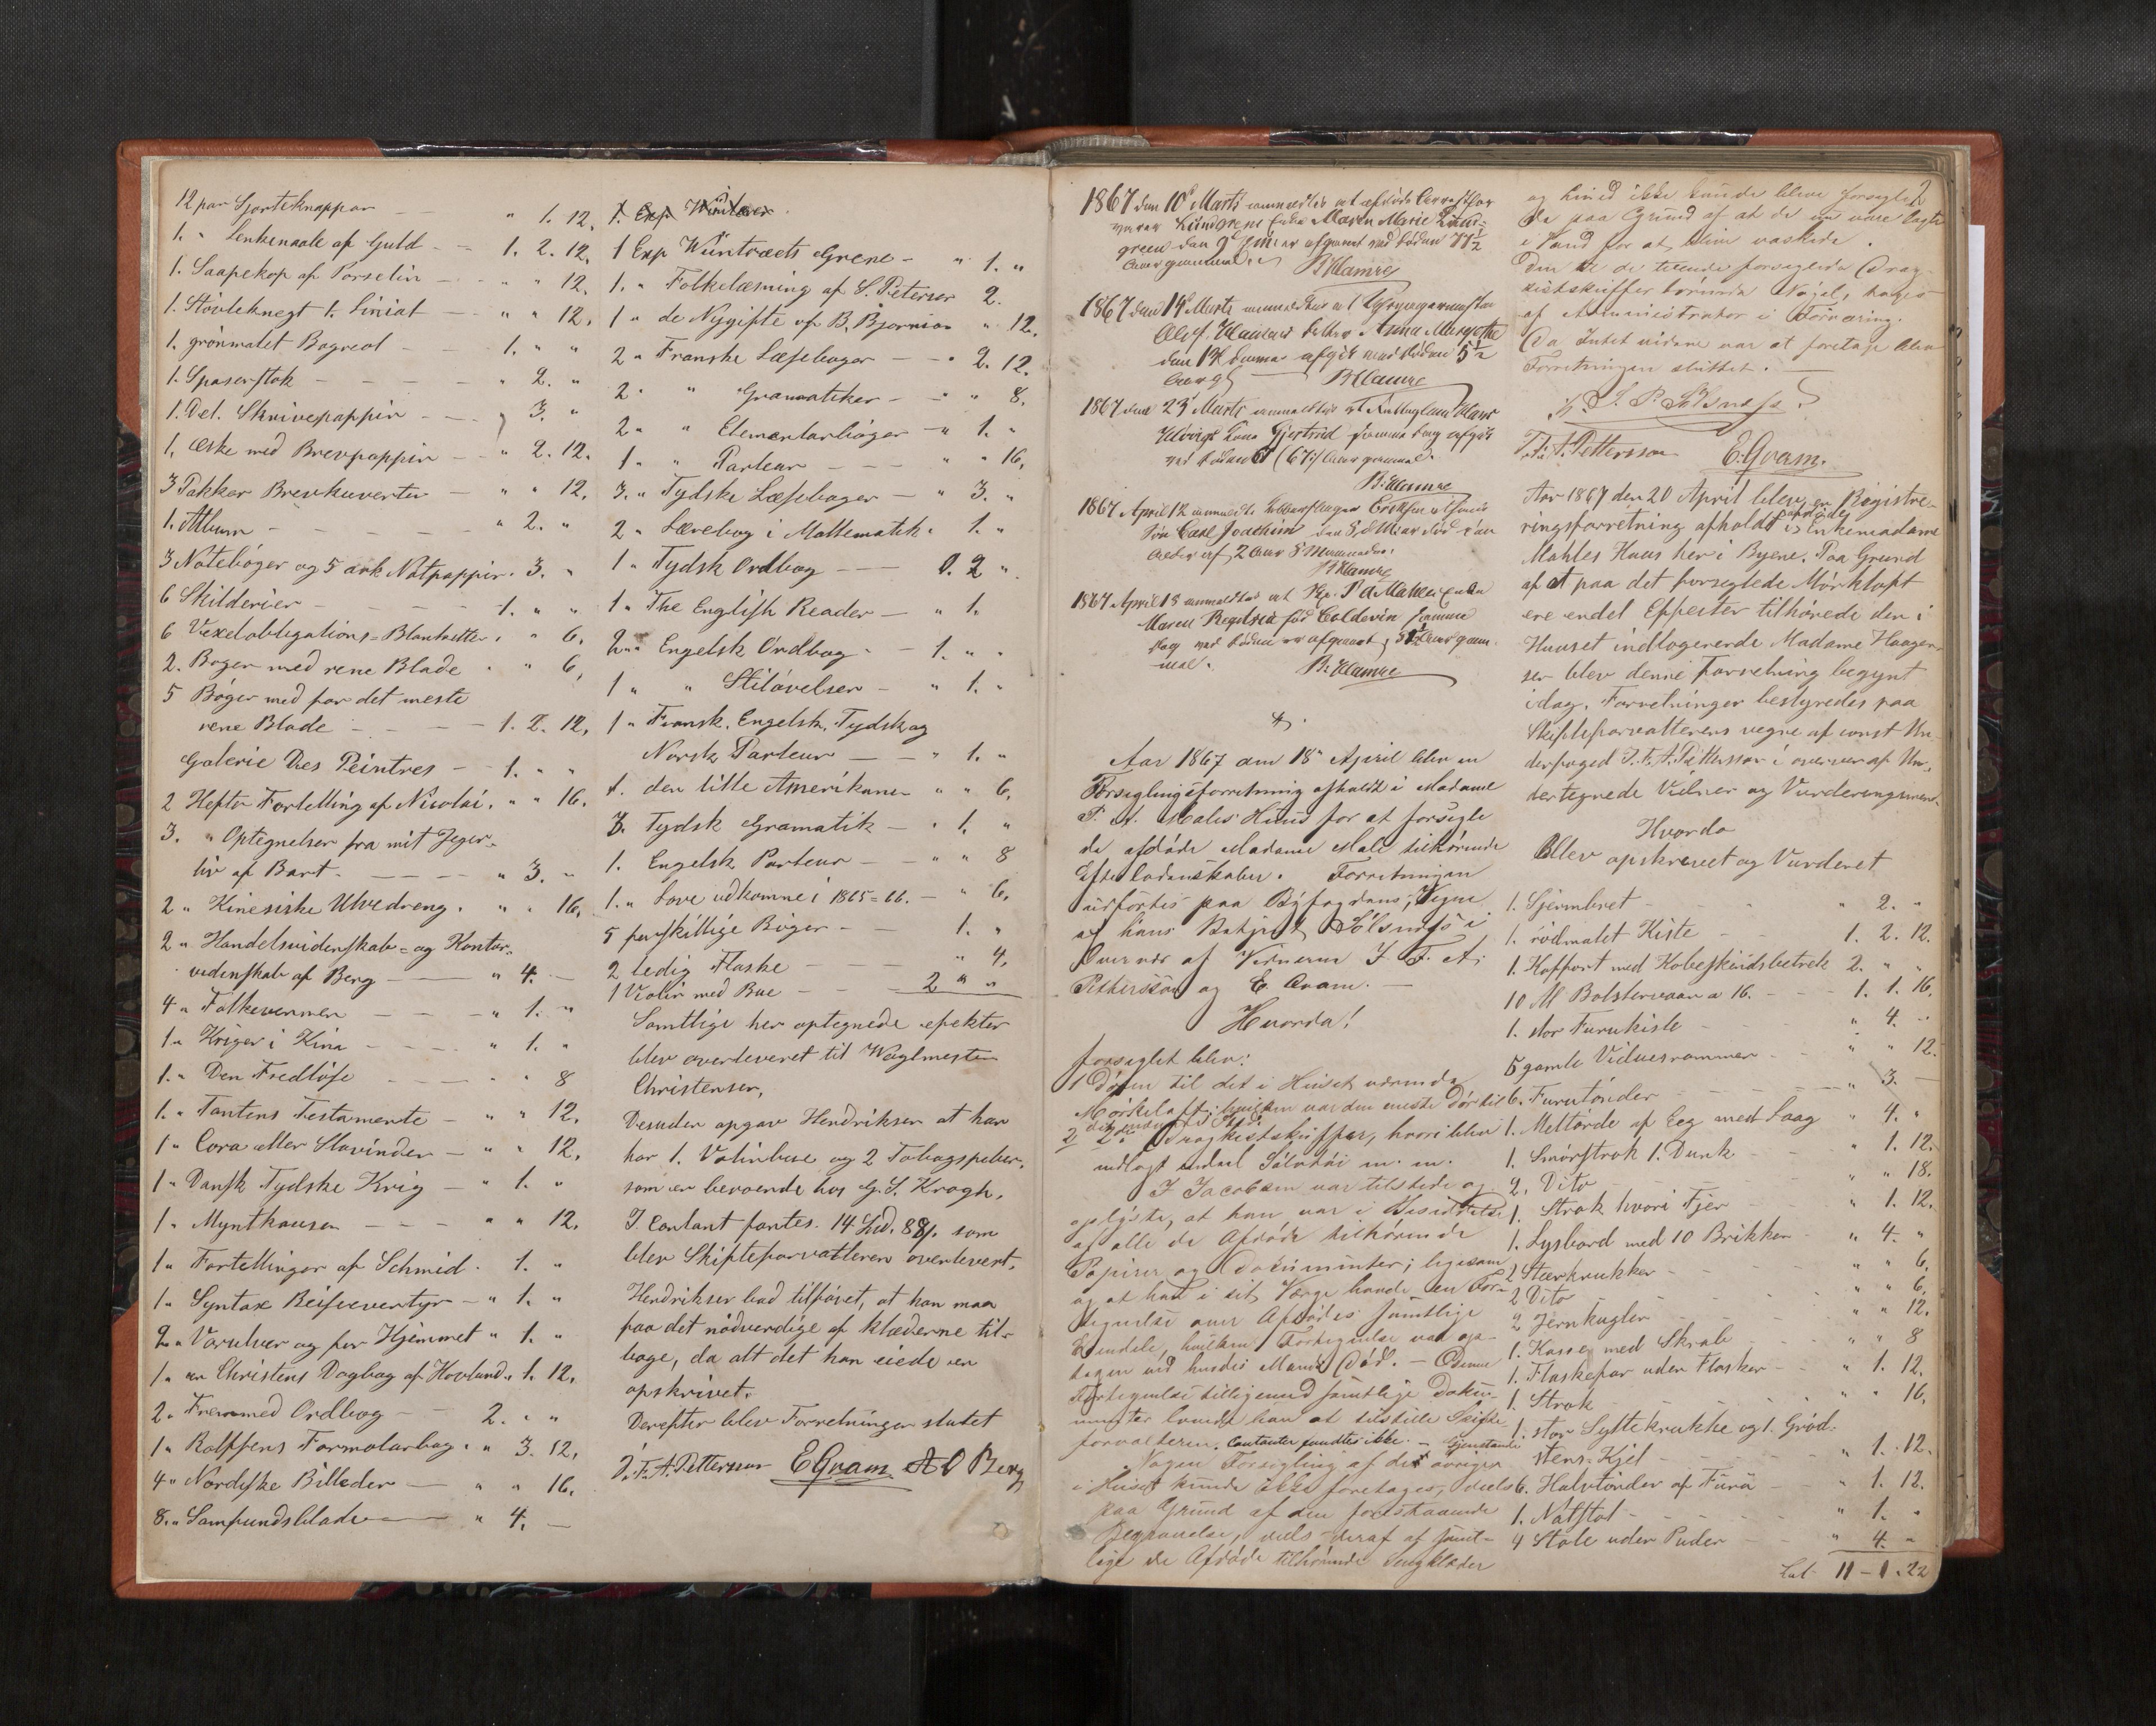 12 par Sjorteknapper — " 1. 12.
1. " Lenkenaale af Guld — 1. 2. 12.
1. Saapekop af Porselin — " " 12.
1. Stövleknegt 1. Linial — " " 12.
1. grönmalet Bogreol — 1. " "
1. Spaserstok — " 2. "
1. Del. Skrivepappir — " 3. "
1. Æske med Brevpappir — " 2. 12.
3 Pakker Brevkuverter — " " 12.
1. Album — " 2. "
3 Notebøger og 5 ark Notpappir. 3. "
6 Skilderier — 1. " "
6 Vexelobligations-Blanketter. " 6.
2. Bøger med rene Blade " " 6,
5 Bøger med for det meste
rene Blade — 1. 2. 12.
Galerie Des Peintres — 1. " "
2 Hefter Fortelling af Nicolai. " " 16.
3. " Optegnelser fra mit Jeger-
liv af Bart. — " 3. "
2 " Kinesiske Ulvedreng. " " 16.
2 " Handelsvidenskab- og Kontor-
videnskab af Berg — " 4. —
4 " Folkevennen — " 1. "
1 " Kriger i Kina — " 1. "
1. " Den Fredløse — " " 8
1. " Tantens Testamente — " " 12.
1 " Cora eller Slavinden — " " 12.
1 " Dansk Tydske Krig — " 1. "
1 " Mynthausen — " " 12.
1 " Fortellinger af Schmid. 1. "
1 " Syntax Reiseeventyr — " 1. "
2 " Varulven og for Hjemmet " 1. "
1 " en Christens Dagbog af Hovlund " 1. 12.
2. Fremmed Ordbog — 2. " "
1 " Rolffsens Formolarbog. " 3. 12.
4 " Nordiske Billeder — " " 16.
8. " Samfundsblade — " 4. —
1. Exp
1 Exp Wüntræets Grene — " 1. "
1. " Folkelæsning af S. Petersen 2.
1 " de Nygifte af B. Bjørnson " 12.
2 " Franske Læsebøger — " 2. 12.
2 " " Gramatiker — " " 8.
2 " " Elementarbøger — " 1. "
1 " " Parleur — " " 16,
3. " Tydske Læsebøger — " 3. "
2 " Lærebog i Mattematik. 1. "
1 " Tydsk Ordbog — 0. 2 "
1 " The English Reader — " 1.
2 " Engelsk Ordbog — 1. " "
1 " " Stiløvelser — " 1. "
1 " Fransk, Engelsk, Tydsk og
Norsk Parleur — " 1. "
1. den lille Amerikaner " " 6,
3. Tydsk Gramatik — " 1. "
1. Engelsk Parleur — " " 8
1. " Love udkomne i 1865-66. — " 6.
5 forskillige Bøger — 1. "
2 ledig Flaske — " 4,
1 Violin med Bue — 2 " "
Samtlige her optegnede efekter
blev overleveret til Vagtmester
Christensen,
Desuden opgav Hendriksen at han
har 1. Violinbue og 2 Tobagspiber,
som er beroende hos G. S. Krogh,
I Contant fantes. 14 Spd. 88 s. som
blev Skifteforvatteren overlevert.
Hendriksen bad tilføiet, at han maa
faa det nødverdige af klæderne til-
bage, da alt det han eiede er
opskrivet.
Derefter blev Forretningen sluttet
J. F. A. Pettersson E Gram A O Berg
1867 den 10de Marts anmeldtes at afdøde
Lundgrens Enke Maren Marie Lund-
green den 9de er afgaaet ved døden 77½
Aar gammel. B. Hamre
1867 den 19de Marts anmeldtes at
Datter Anna Margrethe
den afgik ved døden 5½
Aar gl. B Hamre
1867 den 23de Marts anmeldtes at
Kone Gjertrud samme dag afgik
ved døden (67½) Aar gammel.
B. Hamre
1867 April 12 anmeldte
Søn Carl Joachim den
Alder af 2 Aar 8 Maaneder.
B Hamre
1867 April 13 anmeldtes at P A Mahles Enke
Maren Regitze född Coldevin samme
Dag ved døden er afgaaet, Aar gam-
mel. B. Hamre
Aar 1867 den 18de April blev en
Forseglingsforretning afholdt i Madame
P. A. Males Huus for at forsegle
de afdøde Madame Male tilhørende
Efterladenskaber. Forretningen
udførtes paa Byfogdens Vegne
af hans Solsness i
Overvær af Vidnerne J. F. A.
Pettersson og E. Gram. —
Hvorda!
forseglet blev:
1 Døren til det i Huset værende
Mørkeloft, hvilken var den eneste Dör til
det nævnte
2 2de Dragkisteskuffer, hvori blev
indlagt endeel Sölvtöi m. m.
I Jacobsen var tilstede og
oplyste, at han var i Besiddelse
af alle de Afdøde tilhørende
Papirer og Documenter, ligesom
og at have i sit Værge havde en For-
tegnelse over Afdødes samtlige
Eiendele, hvilken Fortegnelse var op-
tagen ved hendes Mands Död. — Denne
Fortegnelse tilligemed samtlige Doku-
menter lovede han at tilstille Skifte-
forvalteren. Contanter fandtes ikke. —
Nogen Forsegling af de övrige Gjenstande
i Huset kunde ikke foretages, deels
paa Grund af den forestaaende
Begravelse, deels deraf at samt-
lige de Afdøde tilhørende Sengklæder
2
og Linned ikke kunde blive forsegle-
de paa Grund af at de var lagte
i Vand for at blive vaskede.
Den til de tvende forseglede Drag-
kisteskuffer hørende Nøgel, toges
af Administrator i Forvaring.
Da Intet videre var at foretage blev
Forretningen sluttet.
P. Solsness.
J. F. A. Pettersson E. Gram.
Aar 1867 den 20 April blev en Registre-
ringsforretning afholdt i afdøde Enkemadame
Mahles Huus her i Byene. Paa Grund
af at paa det forseglede Mørkloft
ere endel Effecter tilhørede den i
Huuset indlogerende Madame Haagen-
sen blev denne forretning begynt
idag. Forretningen bestyredes paa
Skifteforvatterens vegne af const Un-
derfoged J. F. A. Pettersson i overver af Un-
dertegnede Vidner og Vurderingsmend
Hvorda
Blev opskrevet og Vurderet
1. Sjermbret — " 2. "
1. rödmalet Kiste — 1. 2. 12.
1. Koffort med Kobeskindsbetrek 2. " "
10 M Bolstervaar a 16. — 1. 1. 16.
1. stor Furukiste — " 4. "
5 gamle Viduesrammer — " " 12.
6. Furutønder — " 3. —
1. Meltönde af Eeg med Laag " 4. "
1. Smörstrok 1. Dunk — " 1. 12.
2. Dito — " " 18.
1. Strok hvori Fjer — " 1. 12.
1. Lysbord med 10 Brikken — " 4. "
2 Steenkrukker — " " 6.
2 Dito — " " 6.
2 Jernkugler — " " 12.
1. Kasse med Skrab — " " 8
1. Flaskefor uden Flasker — " 1. 12.
1. Strok — " " 16,
1. stor Syltekrukke og 1. Gröd-
stens-Kjel — " 1. 12.
6. Halvtönder af Furu — " 1. 12.
1. Natstol — " 1. "
4 Stole uden Puder — " 4. "
Lat. 11 - 1. 22